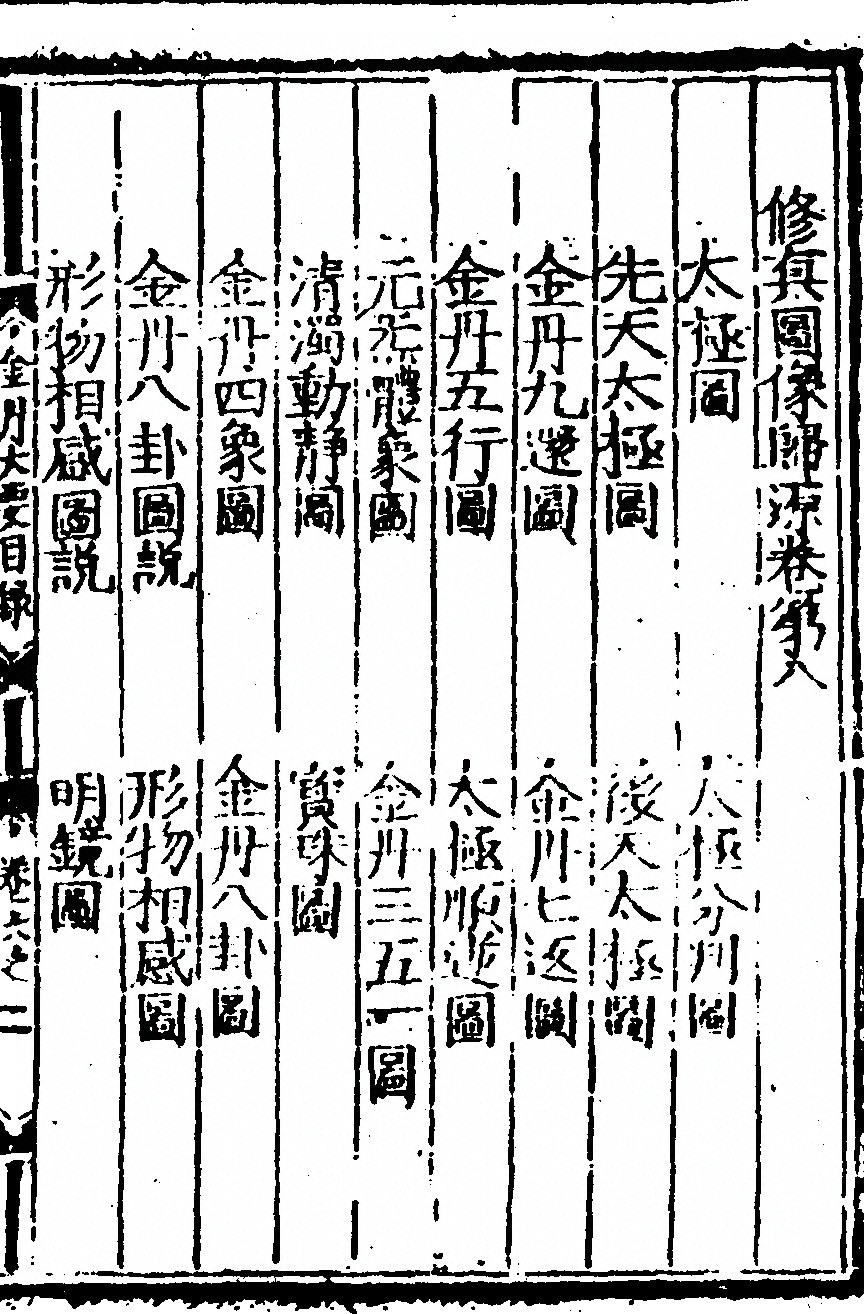 修真圖像歸源卷第八
太極圖 太極分判圖
先天太極圖 後天太極圖
金丹九還圖 金丹七返圖
金丹五行圖 太極順逆圖
元炁體象圖 金丹三五一圖
清濁動靜圖 寶珠圖
金丹四象圖 金丹八卦圖
金丹八卦圖説 形物相感圖
形物相感圖説 明鏡圖
金丹大要目錄 卷六之 二